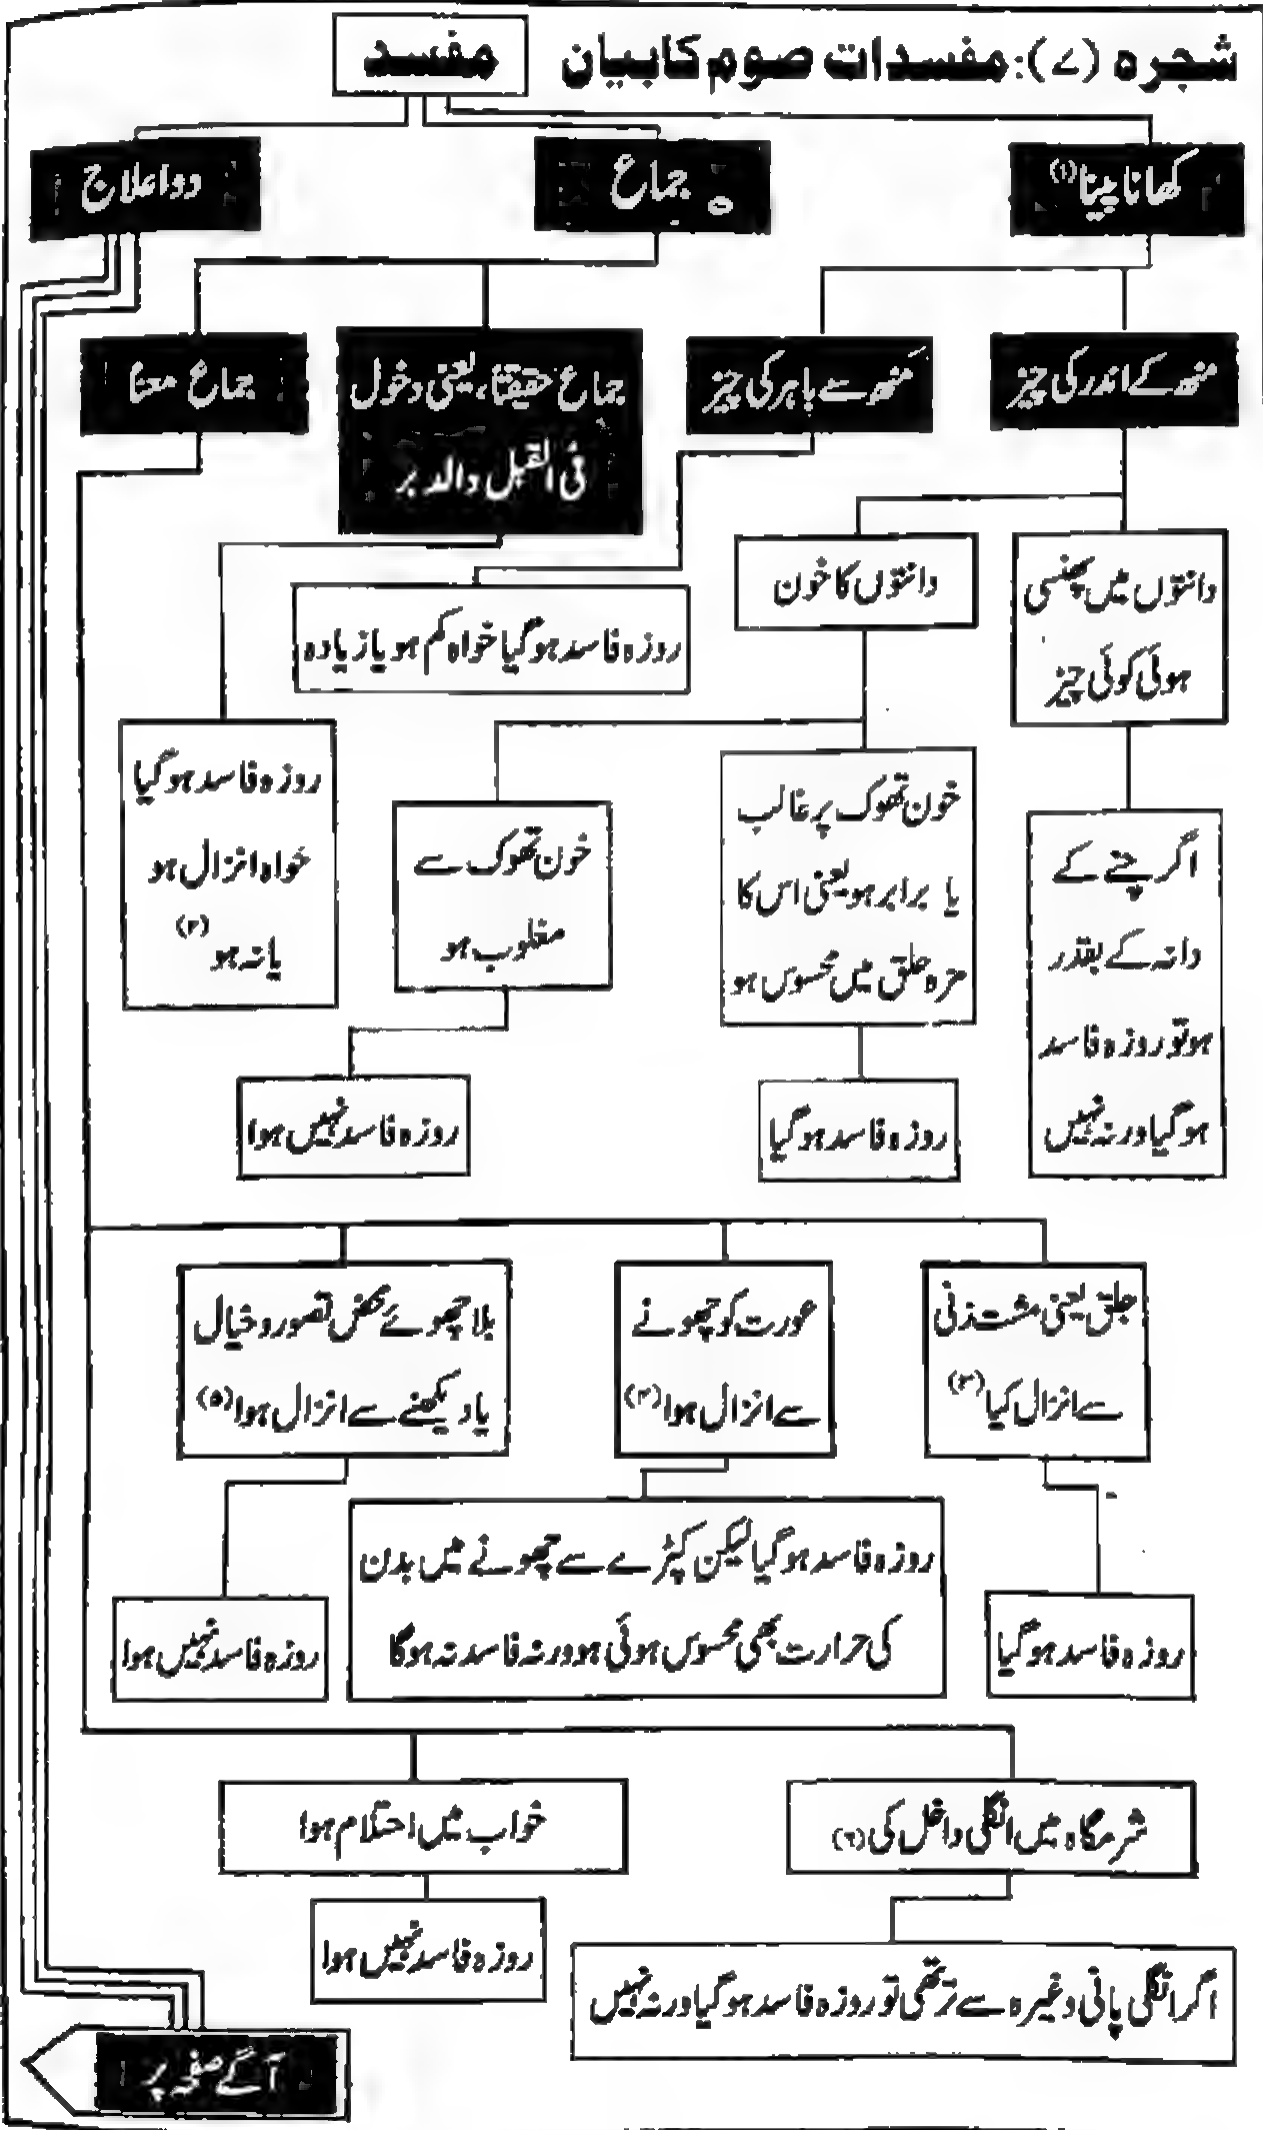 شجرہ (۷): مفسدات صوم کا بیان
مفسد
کھانا پینا (۱)
جماع
دوا علاج
منھ کے اندر کی چیز
منھ سے باہر کی چیز
جماع حقیقتاً، یعنی دخول
فی القبل والدبر
جماع معناً
دانتوں میں پھنسی
ہوئی کوئی چیز
دانتوں کا خون
روزہ فاسد ہوگیا خواہ کم ہو یا زیادہ
اگر چنے کے
دانہ کے بقدر
ہو تو روزہ فاسد
ہوگیا ورنہ نہیں
خون تھوک پر غالب
یا برابر ہو یعنی اس کا
مزہ حلق میں محسوس ہو
خون تھوک سے
مغلوب ہو
روزہ فاسد ہوگیا
خواہ انزال ہو
یا نہ ہو (۲)
روزہ فاسد ہوگیا
روزہ فاسد نہیں ہوا
جلق یعنی مشت زنی
سے انزال کیا (۳)
عورت کو چھونے
سے انزال ہوا (۴)
بلا چھوئے محض تصور و خیال
یا دیکھنے سے انزال ہوا (۵)
روزہ فاسد ہوگیا
روزہ فاسد ہوگیا لیکن کپڑے سے چھونے میں بدن
کی حرارت بھی محسوس ہوئی ہو ورنہ فاسد نہ ہوگا
روزہ فاسد نہیں ہوا
شرمگاہ میں انگلی داخل کی (۶)
خواب میں احتلام ہوا
اگر انگلی پانی وغیرہ سے تر تھی تو روزہ فاسد ہوگیا ورنہ نہیں
روزہ فاسد نہیں ہوا
آگے صفحہ پر